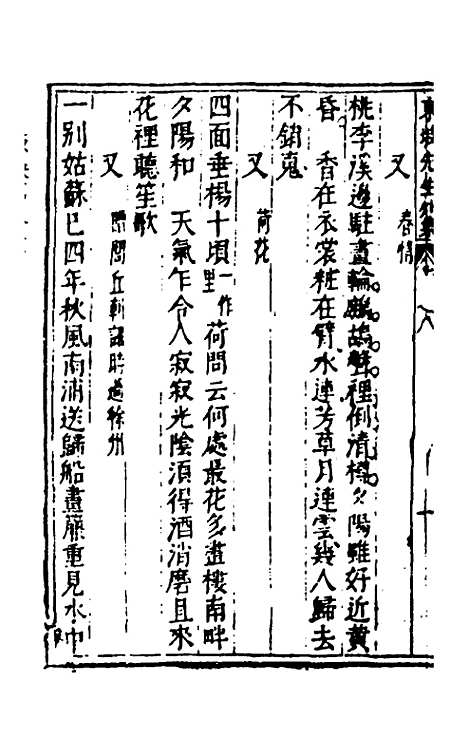 東坡先生外集卷八
又　春情
桃李溪邊駐畫輪鷓鴣聲裡倒清樽夕陽雖好近黃
昏　香在衣裳粧在臂水連芳草月連雲幾人歸去
不銷䰟
又　荷花
四面垂楊十頃一作里荷問云何處最花多畫樓南畔
夕陽和　天氣乍令人寂寂光陰須得酒消磨且來
花裡聽笙歌
又　贈閭丘朝議時過徐州
一别姑蘇已四年秋風南浦送歸船畫簾重見水中